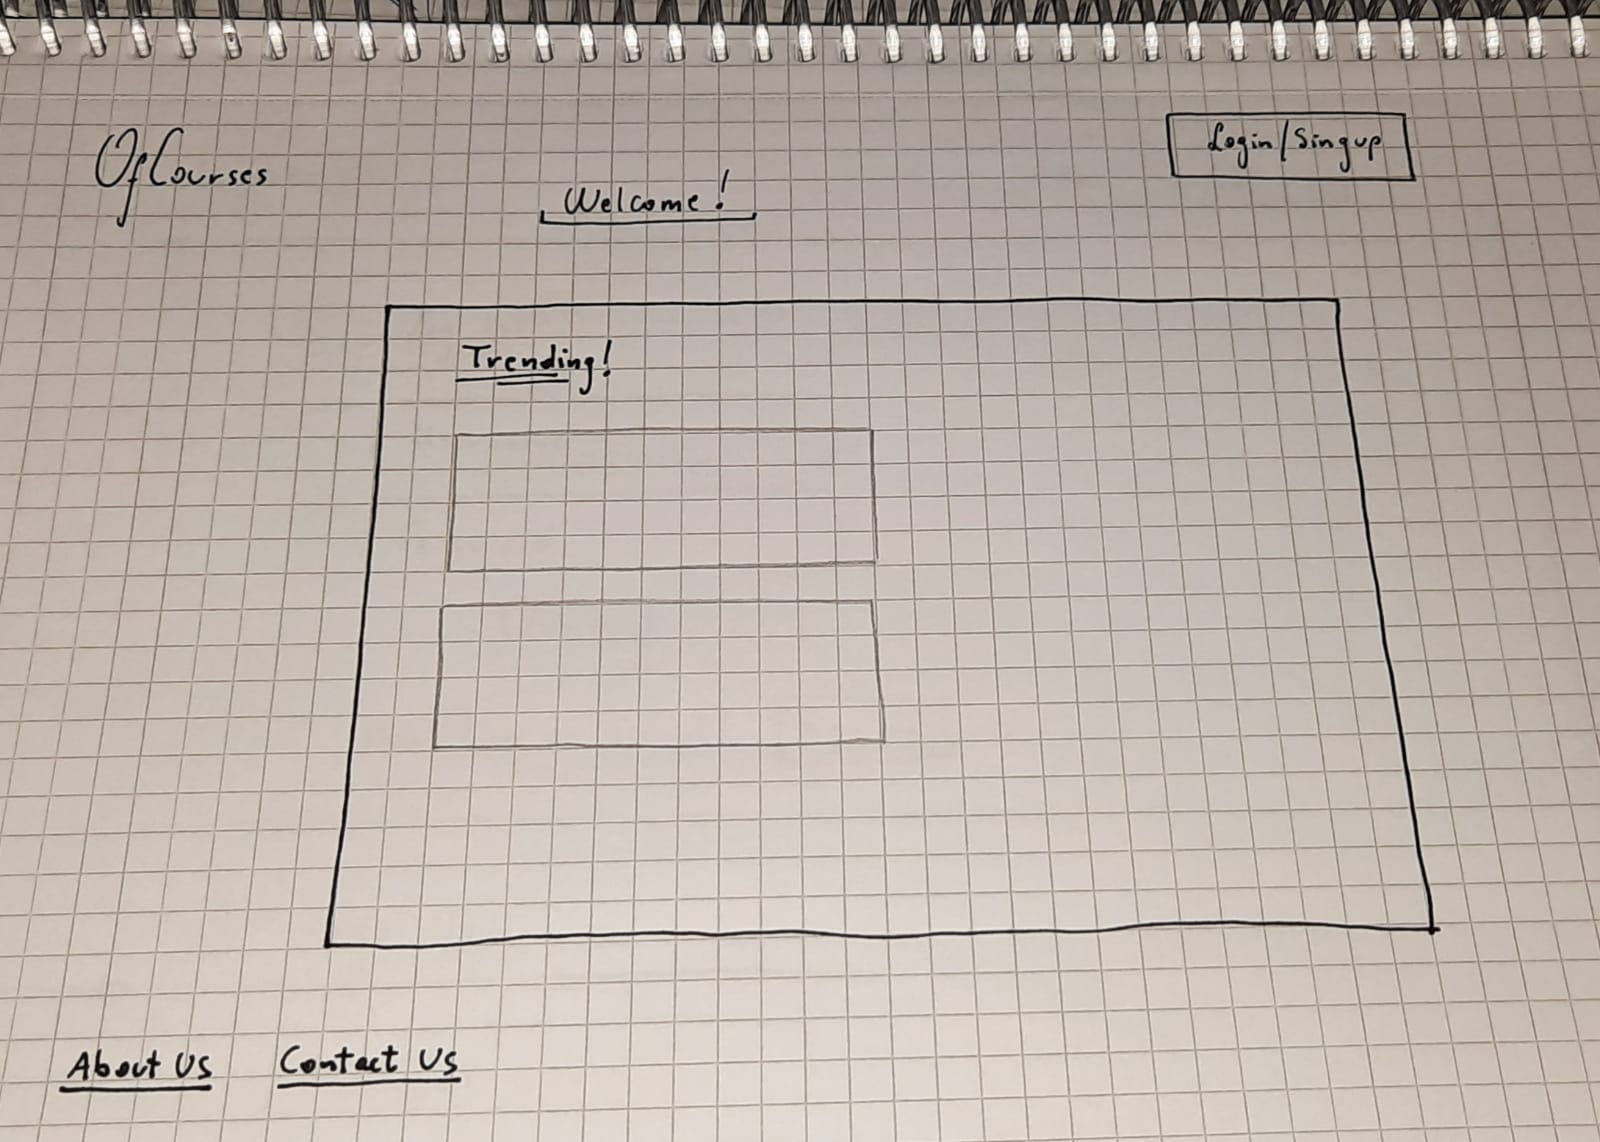 OfCourses
Login/Singup
Welcome!
Trending!
About Us
Contact Us